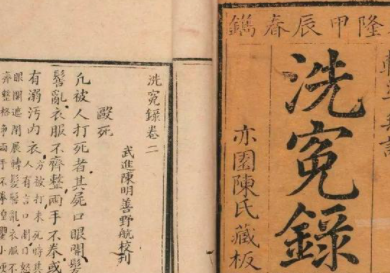 隆甲辰春鐫
洗冤錄
亦園陳氏藏板
洗冤錄卷二
武進陳明善野航校刊
毆死
凡被人打死者其屍口眼開髮
髻亂衣服不齊整兩手不拳或
有溺污內衣